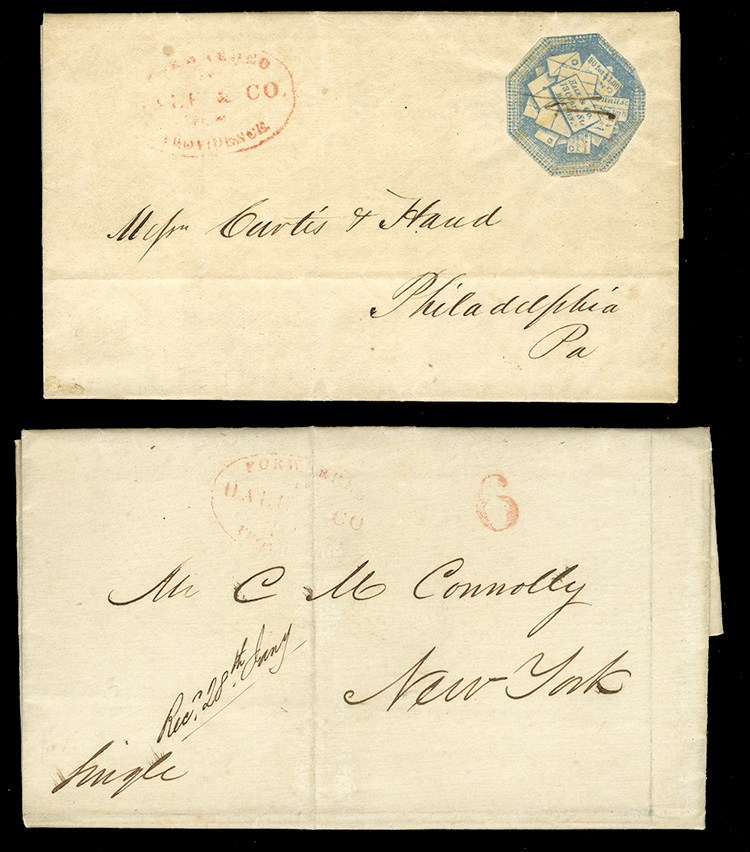 FORWARDED
BY
HALE & CO.
FROM
PROVIDENCE
HALE & CO.
Messrs Curtis & Hand
Philadelphia
Pa
FORWARDED
HALE CO
6
Mr C M Connolly
New York
Recd. 28th Jany
Single